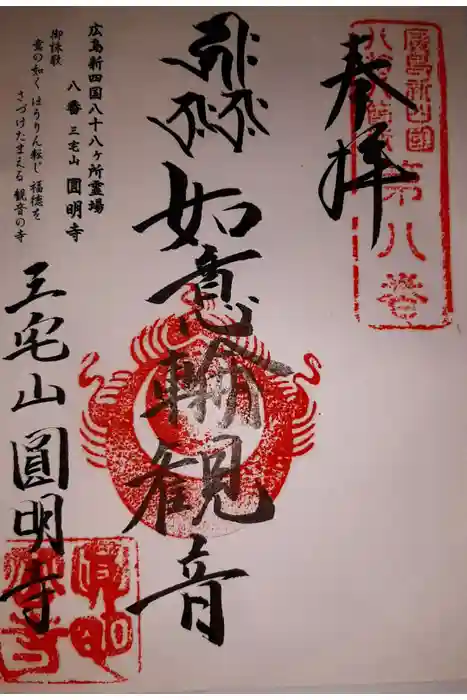 奉拝
広島新四国
八十八ヶ所
第八番
如意輪観音
広島新四国八十八ヶ所霊場
八番 三宅山 圓明寺
御詠歌
意の如く ほうりん転じ 福徳を
さづけたまえる 観音の寺
三宅山 圓明寺